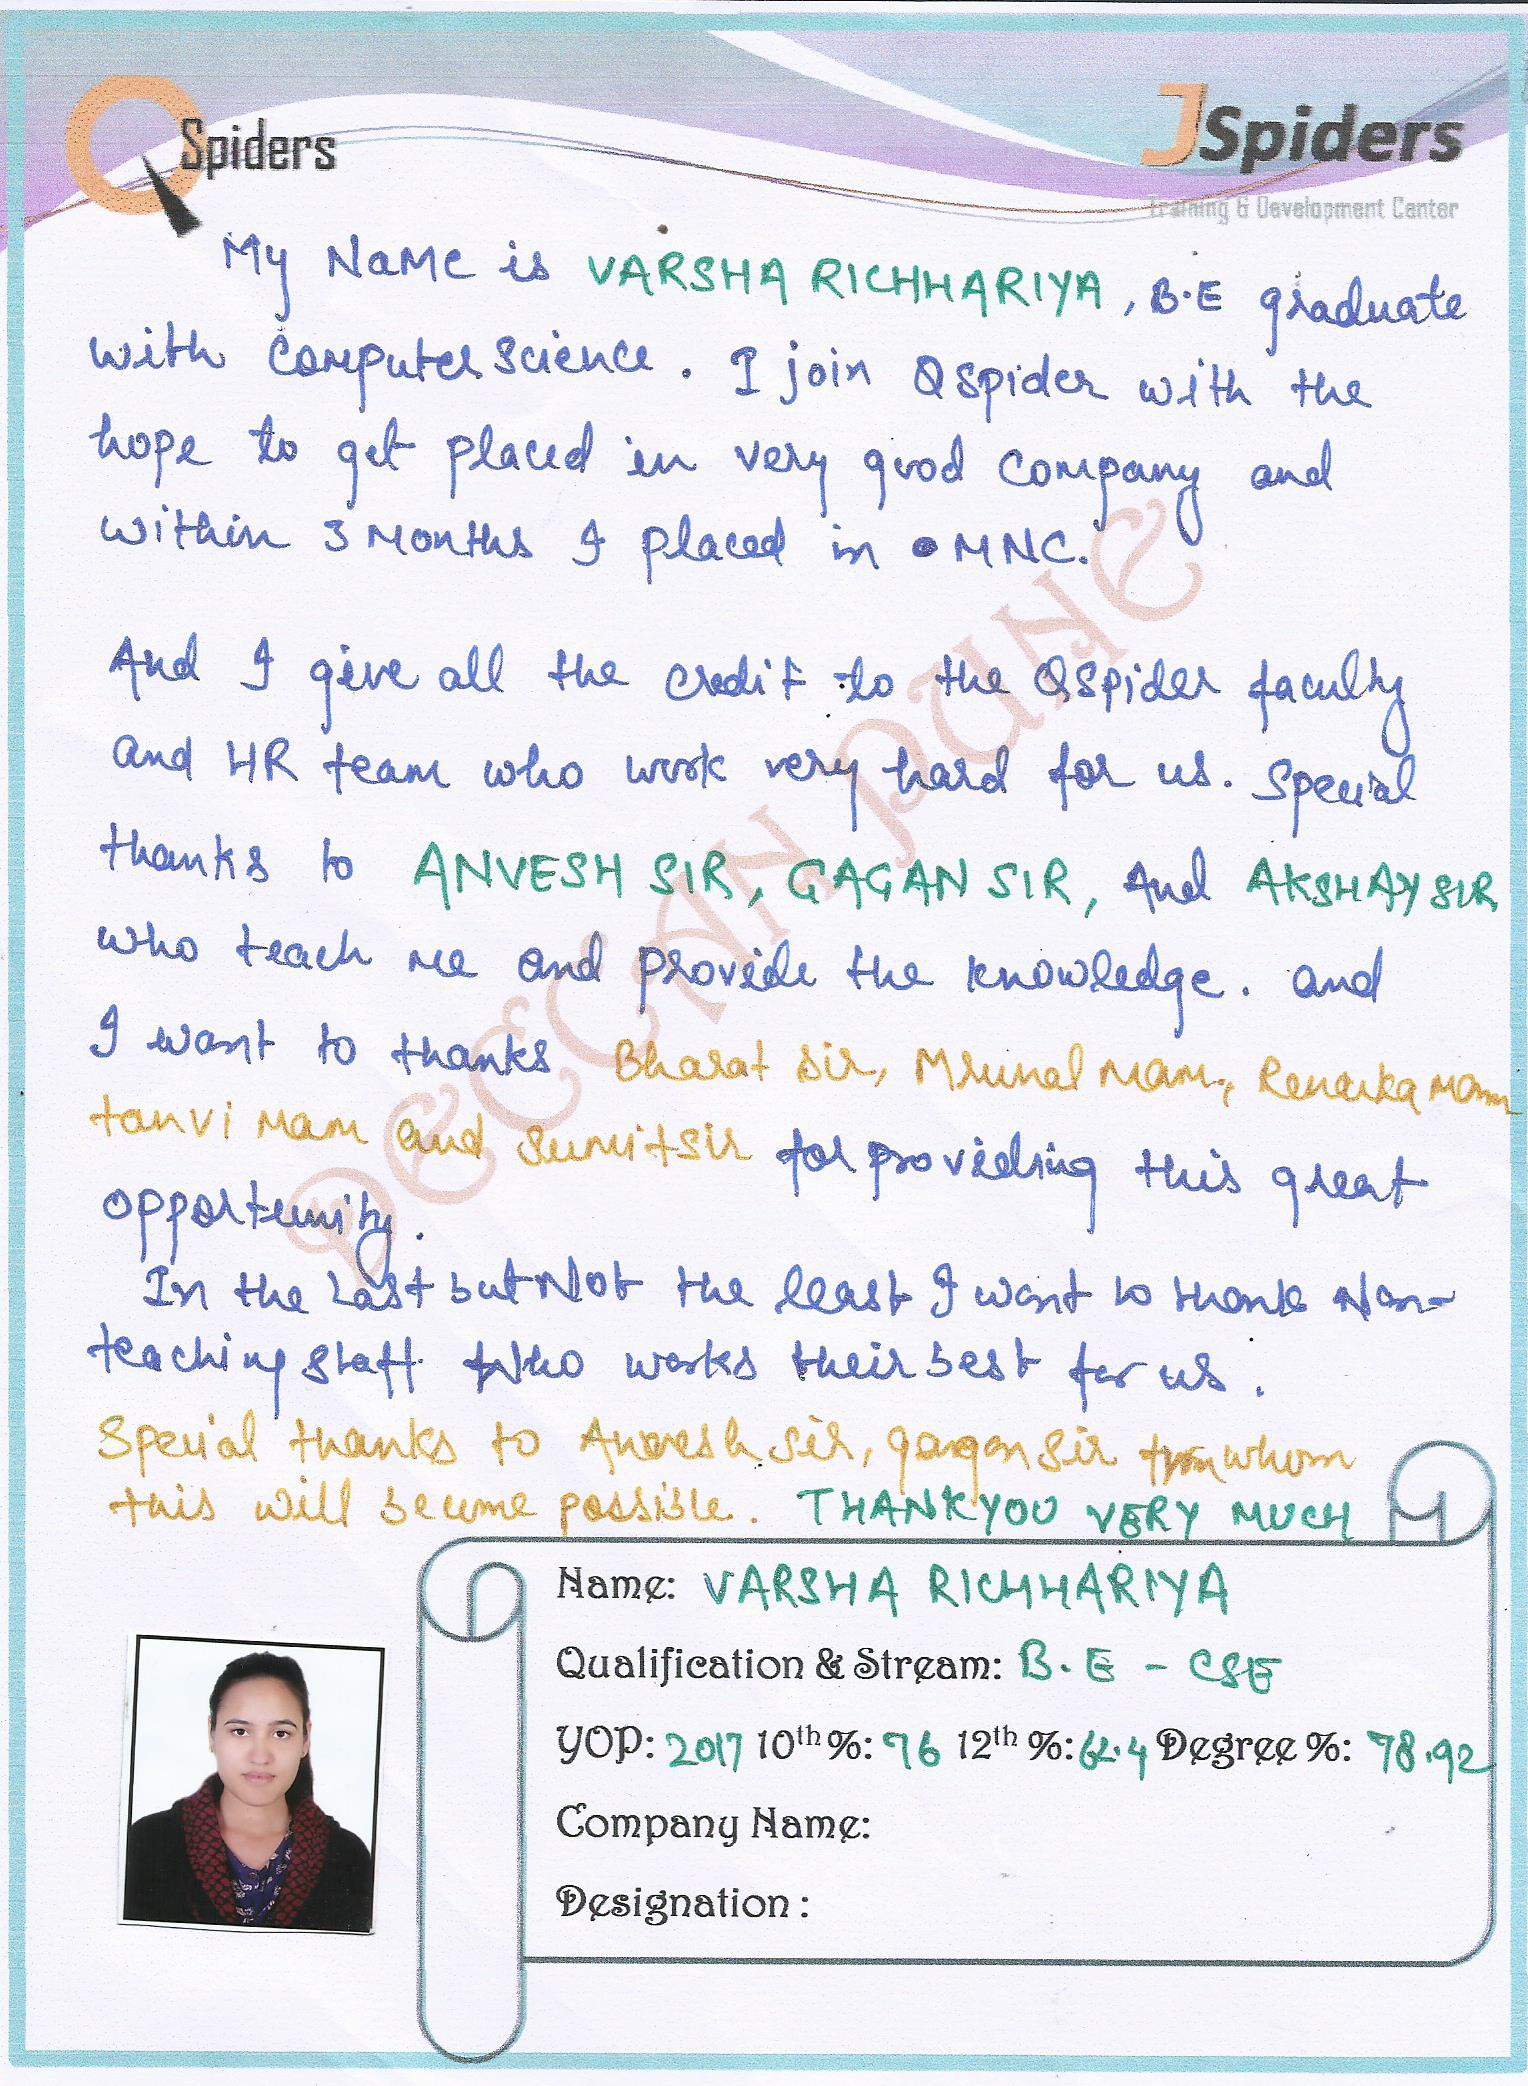 QSpiders
JSpiders
Training & Development Center
My NaMe is VARSHA RICHHARIYA, B.E graduate
with Computer Science. I join QSpider with the
hope to get placed in very good company and
within 3 Months I placed in MNC.
And I give all the credit to the QSpider faculty
and HR team who work very hard for us. Special
thanks to ANVESH SIR, GAGAN SIR, And AKSHAY SIR
who teach me and provide the knowledge. and
I want to thanks Bharat sir, Mrunal Mam, Renuka Mam
tanvi Mam and Sumit sir for providing this great
opportunity.
In the Last but Not the least I want to thank Non-
teaching staff who works their best for us.
Special thanks to Anvesh sir, gagan sir from whom
this will become possible. THANKYOU VERY MUCH
DECCAN PUNE
Name: VARSHA RICHHARIYA
Qualification & Stream: B.E - CSE
YOP: 2017 10th %: 76 12th %: 62.4 Degree %: 78.92
Company Name:
Designation :